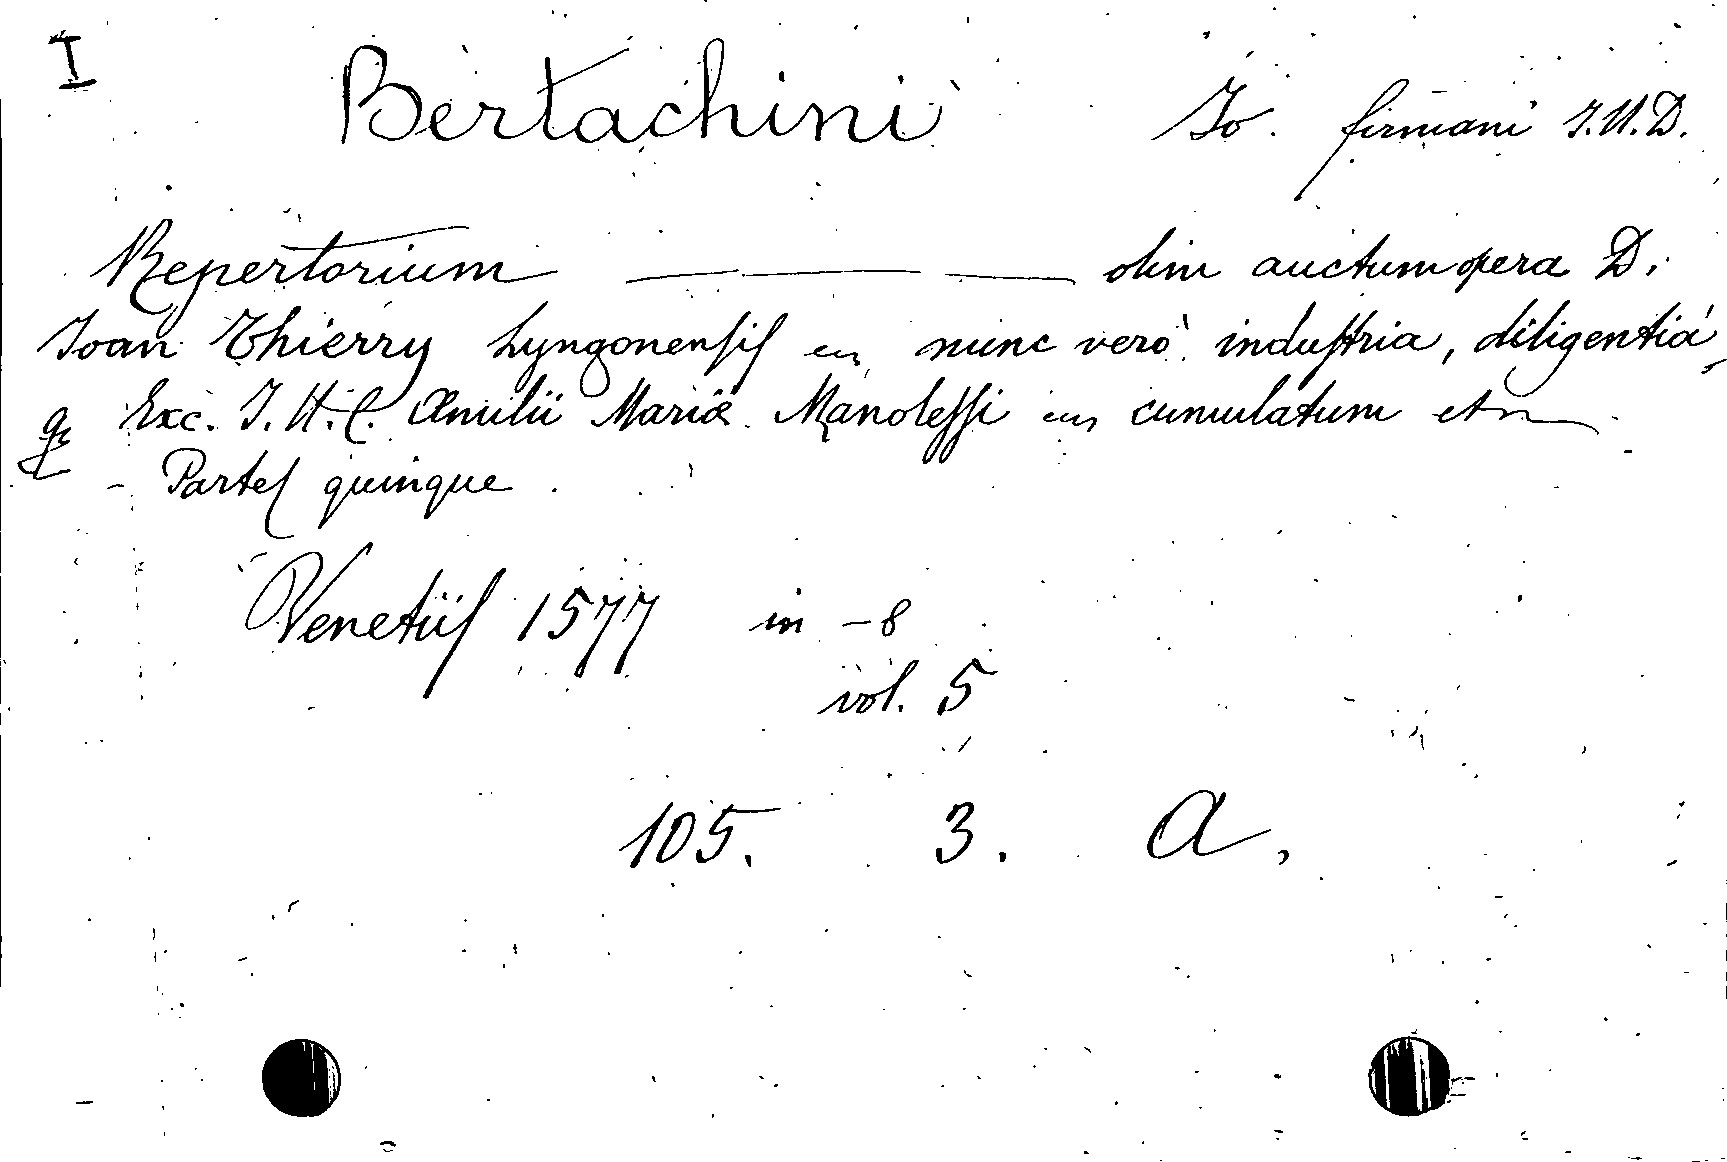 I
Bertachini Io. firmani I.U.D.
Repertorium ——— olim auctum opera D.
Ioan Thierry Lyngonenſiſ en nunc verò induſtria, diligentiá
q Exc. I. U. C. Æmilii Mariæ Manoleſſi cumulatum etc
- Parteſ quinque.
Venetiiſ 1577 in -8
vol. 5
105. 3. A.